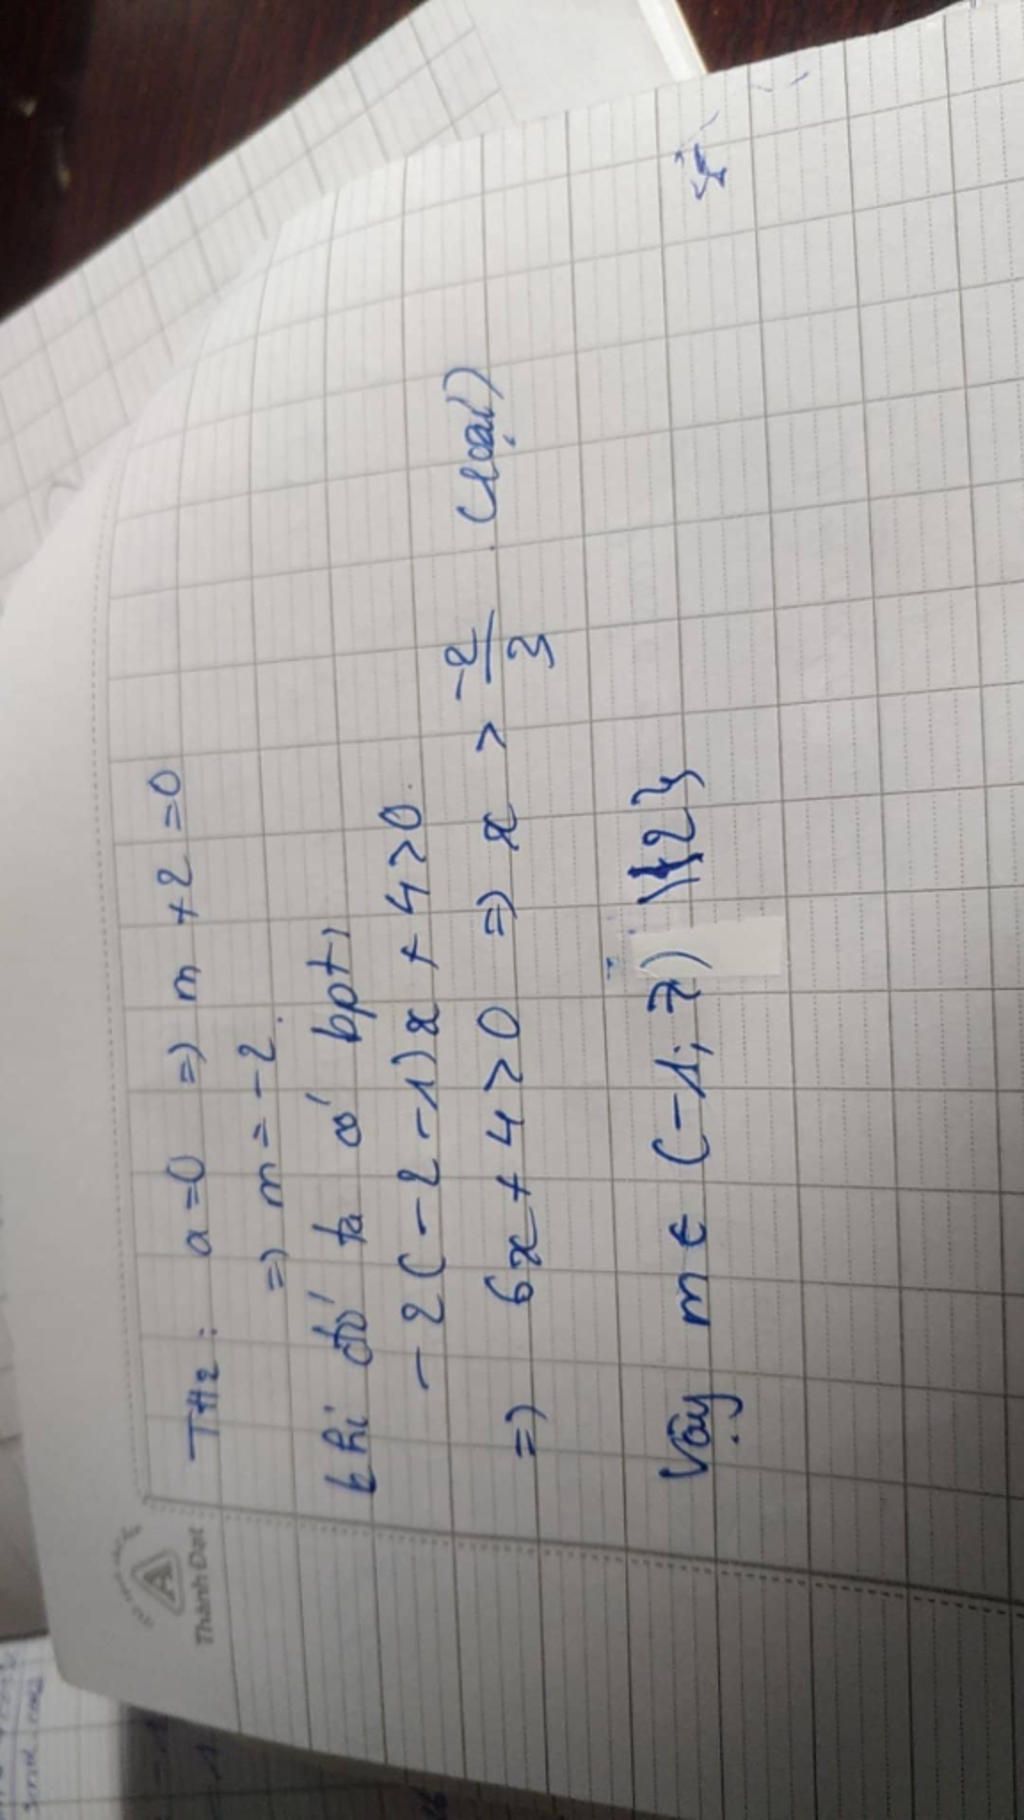 Thành Đạt
TH2: a=0 => m +2 =0
=> m = -2.
khi đó ta có bpt:
-2(-2-1)x + 4>0.
=> 6x + 4>0 => x > -2/3 . (loại)
Vậy m ∈ (-1; 7) \{2}